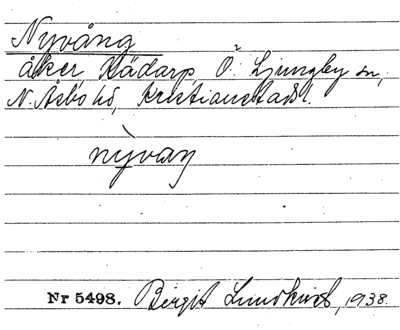 Nyvång
åker, Rädarp, Ö. Ljungby sn,
N. Åsbo hd, Kristianstads l.
nỳvaŋ
Nr 5498. Birgit Lundkvist, 1938.